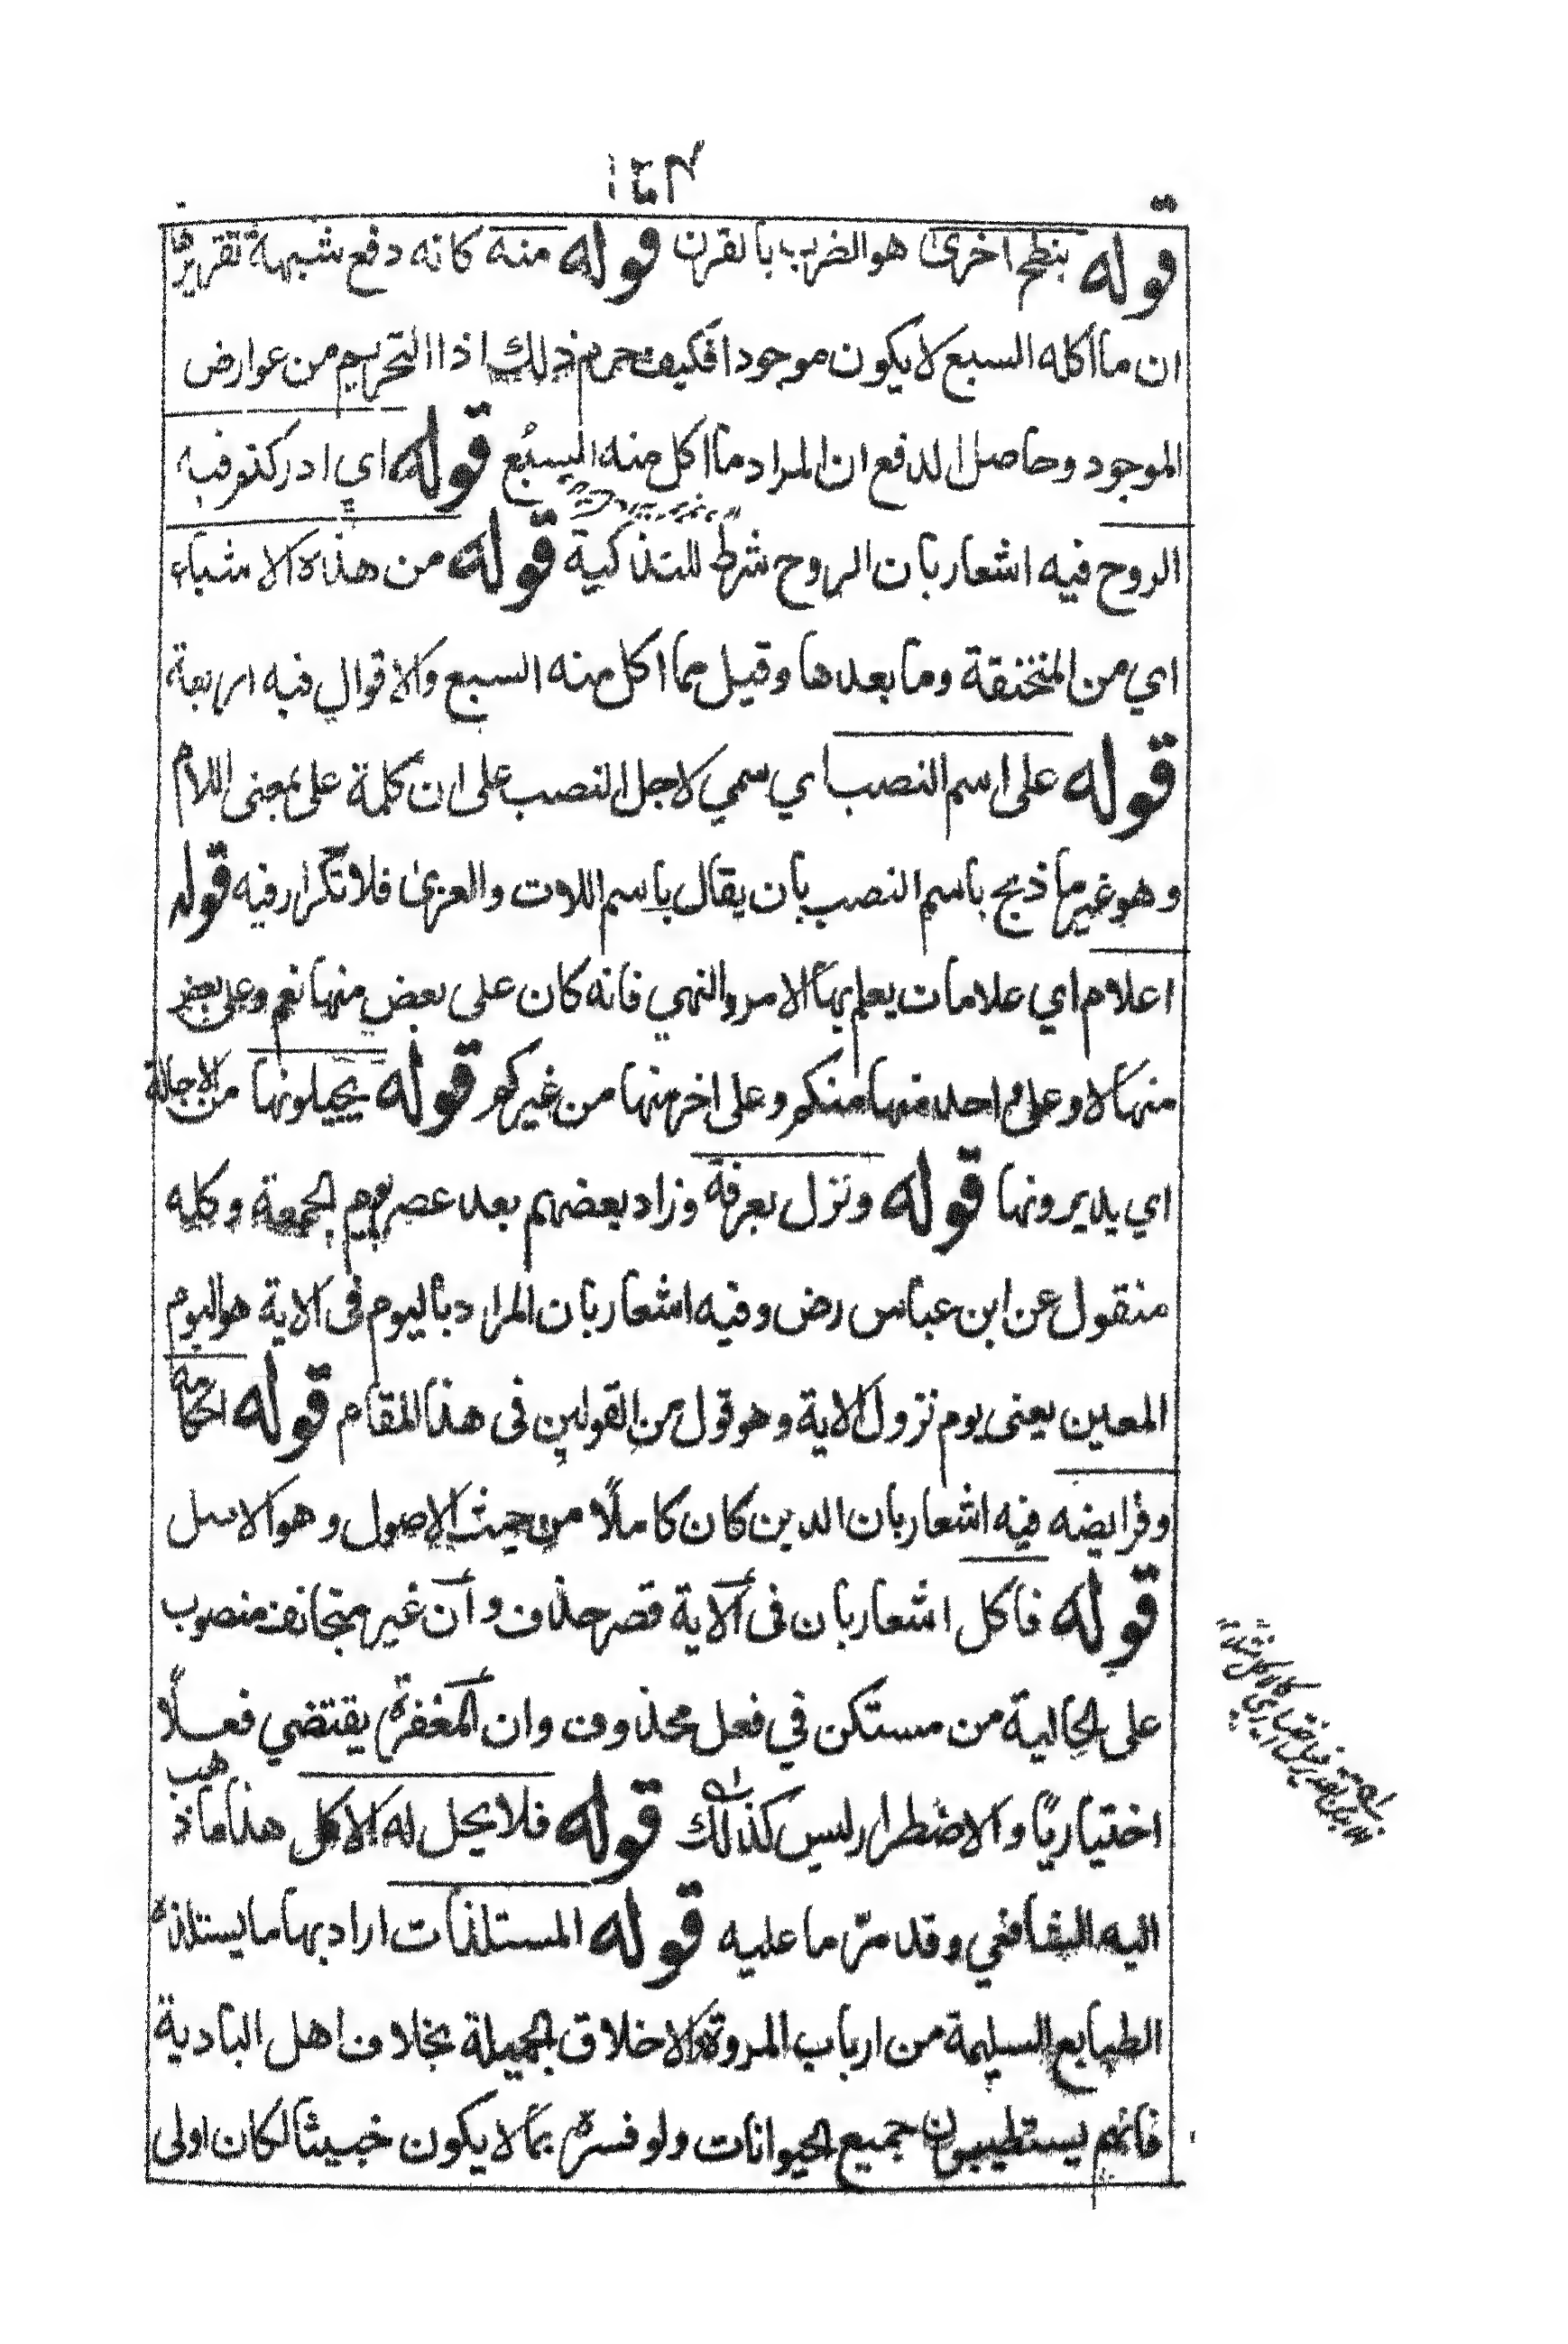 قوله بنطح اخرى هو الضرب بالقرن قوله منه كانه دفع شبهة تقريرها
ان ما اكله السبع لا يكون موجودا فكيف يحرم ذلك اذ التحريم من عوارض
الموجود وحاصل الدفع ان المراد ما اكل منه السبع قوله اي ادركتم فيه
الروح فيه اشعار بان الروح شرط للتذكية قوله من هذه الاشياء
اي من المنخنقة وما بعدها وقيل مما اكل منه السبع والاقوال فيه اربعة
قوله على اسم النصب اي سمي لاجل النصب على ان كلمة على بمعنى اللام
وهو غير ما ذبح باسم النصب بان يقال باسم اللات والعزى فلا تكرار فيه قوله
اعلام اي علامات يعلم بها الامر والنهي فانه كان على بعض منها نعم وعلى بعض
منها لا وعلى واحد منها منكم وعلى اخر منها من غيركم قوله يجيلونها من الاجالة
اي يديرونها قوله ونزل بعرفة وزاد بعضهم بعد عصر يوم الجمعة وكله
منقول عن ابن عباس رض وفيه اشعار بان المراد باليوم فى الاية هو اليوم
المعين يعنى يوم نزول الاية وهو قول من القولين فى هذا المقام قوله احكامه
وفرايضه فيه اشعار بان الدين كان كاملا من حيث الاصول وهو الاصل
قوله فاكل اشعار بان فى الاية قصر حذف وان غير متجانف منصوب
على الحالية من مستكن في فعل محذوف وان المغفرة يقتضي فعلا
اختياريا والاضطرار ليس كذلك قوله فلا يحل له الاكل هذا ما ذهب
اليه الشافعي وقد مر ما عليه قوله المستلذات اراد بها ما يستلذه
الطبايع السليمة من ارباب المروة والاخلاق الجميلة بخلاف اهل البادية
فانهم يستطيبون جميع الحيوانات ولو فسره بما لا يكون خبيثا لكان اولى